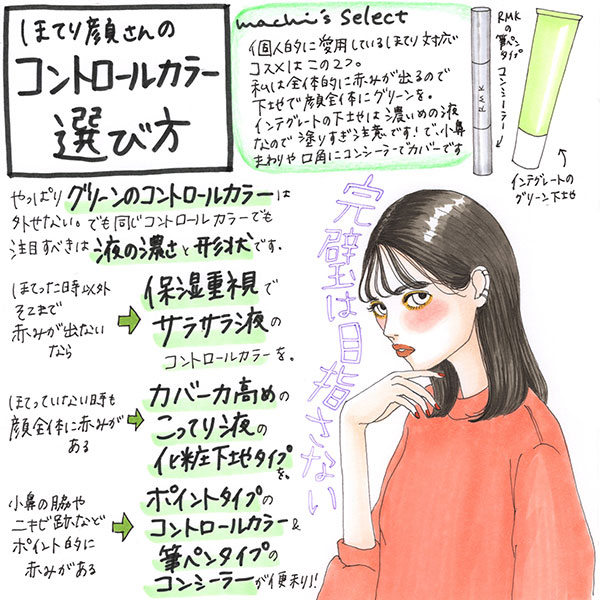 ほてり顔さんの
コントロールカラー
選び方
machi's Select
個人的に愛用しているほてり対応
コスメはこの2つ。
私は全体的に赤みが出るので
下地で顔全体にグリーンを。
インテグレートの下地は濃いめの液
なので塗りすぎ注意です!で、小鼻
まわりや口角にコンシーラーでカバーです
RMK
の
筆ペン
タイプ
コンシーラー
RMK
インテグレートの
グリーン下地
やっぱりグリーンのコントロールカラーは
外せない。でも同じコントロールカラーでも
注目すべきは液の濃さと形状です。
ほてった時以外
そこまで
赤みが出ない
なら
保湿重視で
サラサラ液の
コントロールカラーを。
ほてっていない時も
顔全体に赤みが
ある
カバー力高めの
こってり液の
化粧下地タイプを。
小鼻の脇や
ニキビ跡など
ポイント的に
赤みがある
ポイントタイプの
コントロールカラー&
筆ペンタイプの
コンシーラーが便利!!
完璧は目指さない